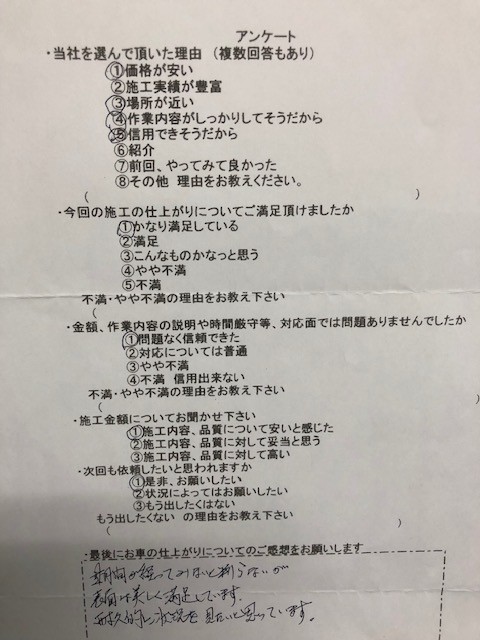 アンケート
・当社を選んで頂いた理由 (複数回答もあり)
①価格が安い
②施工実績が豊富
③場所が近い
④作業内容がしっかりしてそうだから
⑤信用できそうだから
⑥紹介
⑦前回、やってみて良かった
⑧その他 理由をお教えください。
( )
・今回の施工の仕上がりについてご満足頂けましたか
①かなり満足している
②満足
③こんなものかなっと思う
④やや不満
⑤不満
不満・やや不満の理由をお教え下さい
(
・金額、作業内容の説明や時間厳守等、対応面では問題ありませんでしたか
①問題なく信頼できた
②対応については普通
③やや不満
④不満 信用出来ない
不満・やや不満の理由をお教え下さい
( )
・施工金額についてお聞かせ下さい
①施工内容、品質について安いと感じた
②施工内容、品質に対して妥当と思う
③施工内容、品質に対して高い
・次回も依頼したいと思われますか
①是非、お願いしたい
②状況によってはお願いしたい
③もう出したくはない
もう出したくない の理由をお教え下さい
( )
・最後にお車の仕上がりについてのご感想をお願いします
期間が経ってみないと判らないが
表面は美しく満足しています。
耐久的に状況を見たいと思っています。